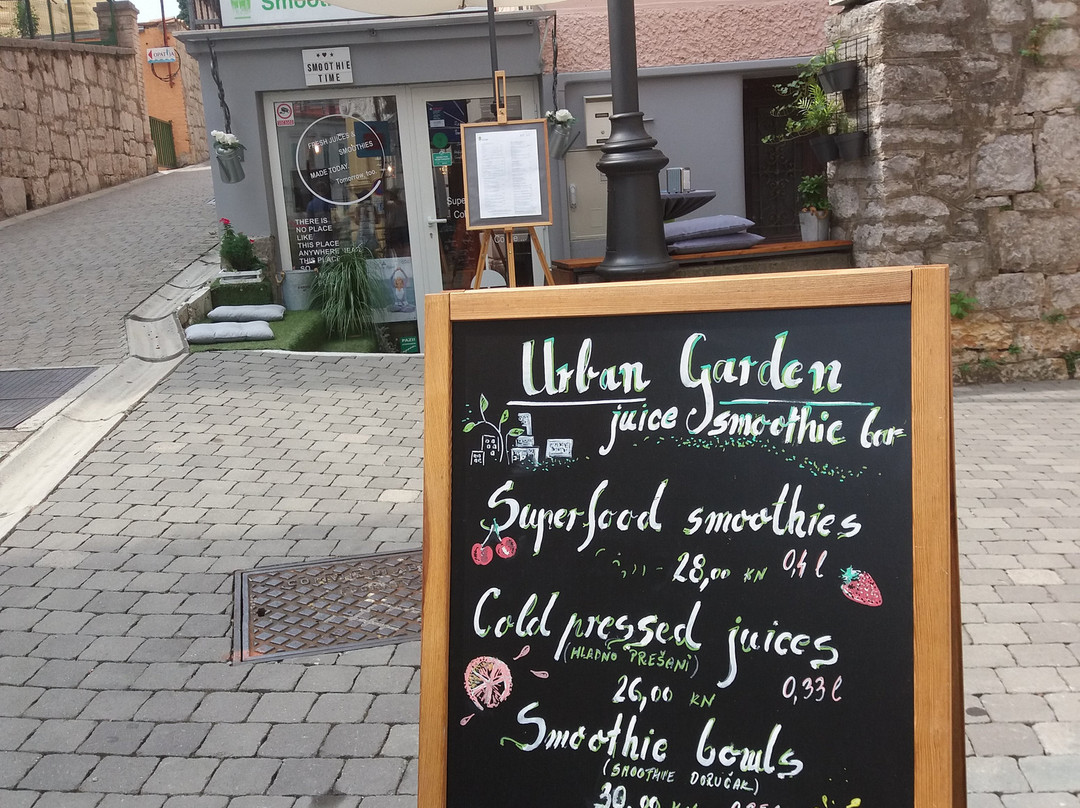 Smoo
SMOOTHIE
TIME
OPATIJA
FRESH JUICES &
SMOOTHIES
MADE TODAY.
Tomorrow too.
THERE IS
NO PLACE
LIKE
THIS PLACE
ANYWHERE NEAR
THIS PLACE
SO
Urban Garden
juice & smoothie bar
Superfood smoothies
28,00 KN 0,4 l
Cold pressed juices
(HLADNO PREŠANI)
26,00 KN 0,33 l
Smoothie bowls
(SMOOTHIE DORUČAK)
30,00